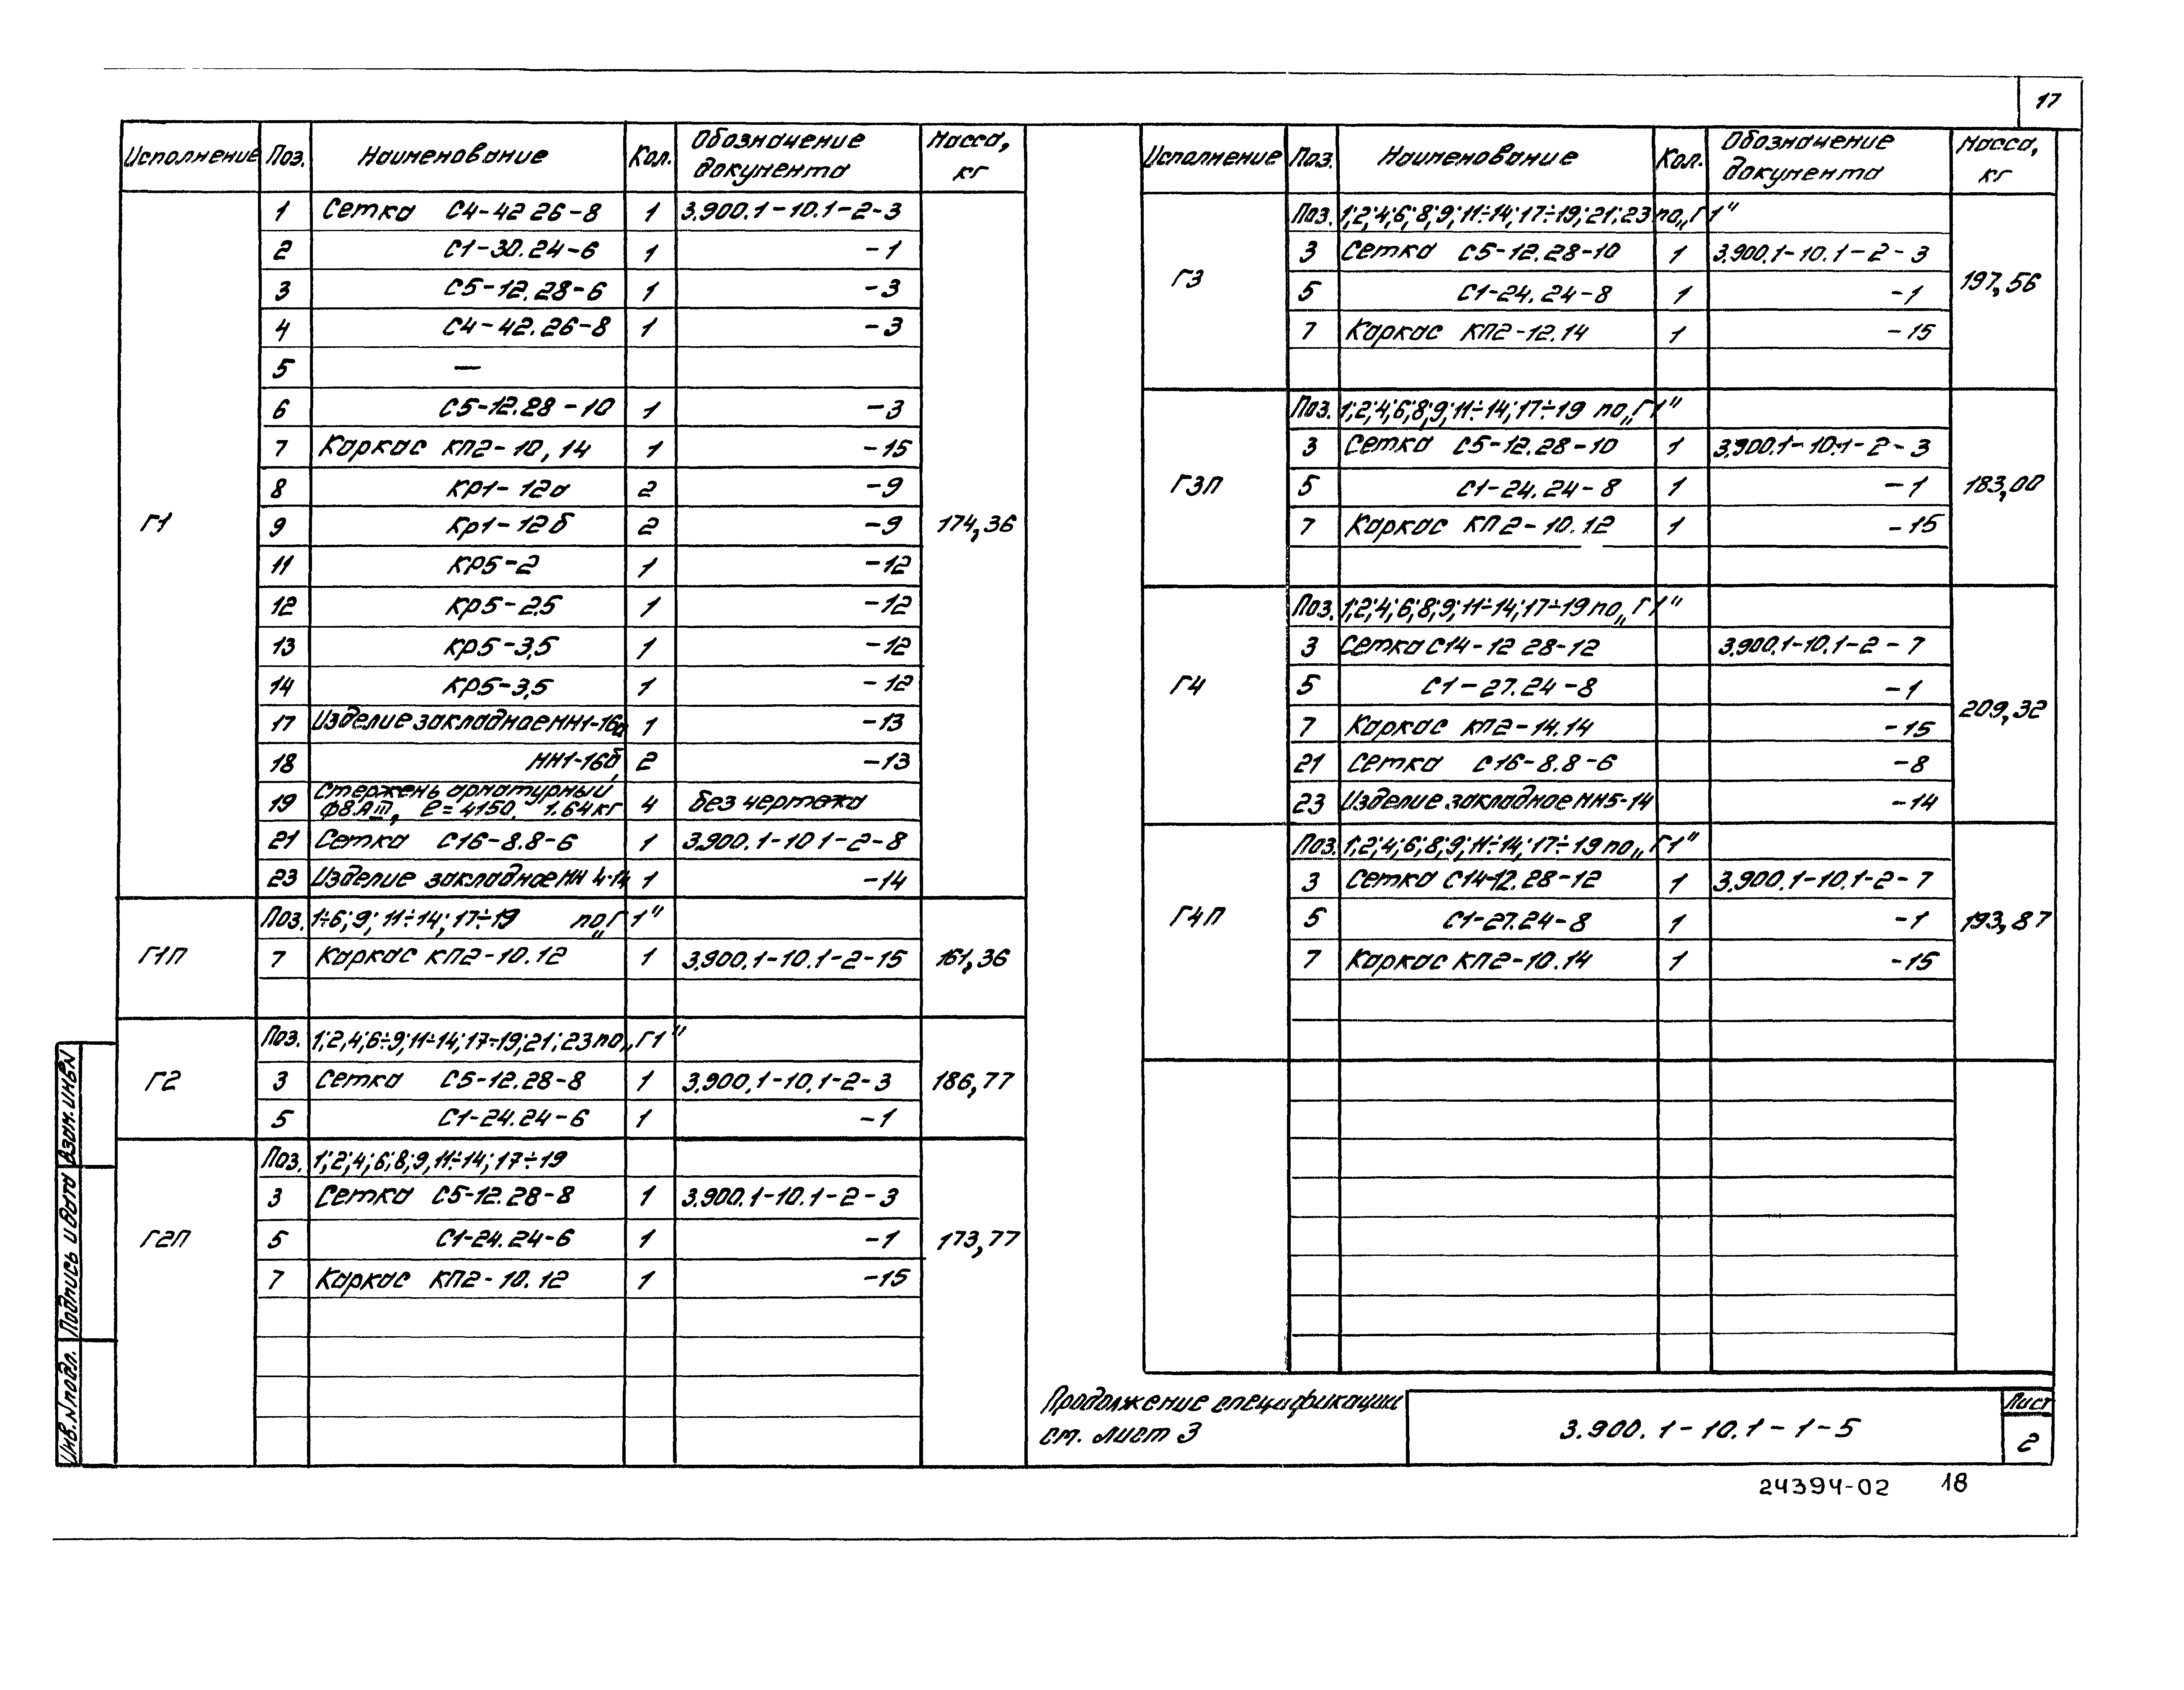 17
Исполнение Поз. Наименование Кол. Обозначение документа Масса, кг
Г1 174,36
1 Сетка С4-42 26-8 1 3.900.1-10.1-2-3
2 С1-30.24-6 1 -1
3 С5-12.28-6 1 -3
4 С4-42.26-8 1 -3
5 —
6 С5-12.28-10 1 -3
7 Каркас КП2-10,14 1 -15
8 КР1-12а 2 -9
9 Кр1-12б 2 -9
11 КР5-2 1 -12
12 КР5-2,5 1 -12
13 КР5-3,5 1 -12
14 КР5-3,5 1 -12
17 Изделие закладное МН1-16а 1 -13
18 МН1-16б 2 -13
19 Стержень арматурный
ф8АIII, ℓ=4150, 1.64кг 4 без чертежа
21 Сетка С16-8.8-6 1 3.900.1-10 1-2-8
23 Изделие закладное МН 4-14 1 -14
Г1П 161,36
Поз. 1÷6; 9; 11÷14; 17÷19 по „Г1"
7 Каркас КП2-10.12 1 3.900.1-10.1-2-15
Г2 186,77
Поз. 1;2,4;6÷9;11÷14;17÷19;21;23 по „Г1"
3 Сетка С5-12.28-8 1 3.900.1-10.1-2-3
5 С1-24.24-6 1 -1
Г2П 173,77
Поз. 1;2;4;6;8;9,11÷14; 17÷19
3 Сетка С5-12.28-8 1 3.900.1-10.1-2-3
5 С1-24.24-6 1 -1
7 Каркас КП2-10.12 1 -15
Исполнение Поз. Наименование Кол. Обозначение документа Масса, кг
Г3 197,56
Поз. 1;2;4;6;8;9;11÷14;17÷19;21;23 по „Г1"
3 Сетка С5-12.28-10 1 3.900.1-10.1-2-3
5 С1-24.24-8 1 -1
7 Каркас КП2-12.14 1 -15
Г3П 183,00
Поз. 1;2;4;6;8;9;11÷14;17÷19 по „Г1"
3 Сетка С5-12.28-10 1 3.900.1-10.1-2-3
5 С1-24.24-8 1 -1
7 Каркас КП2-10.12 1 -15
Г4 209,32
Поз. 1;2;4;6;8;9;11÷14;17÷19 по „Г1"
3 Сетка С14-12 28-12 3.900.1-10.1-2-7
5 С1-27.24-8 -1
7 Каркас КП2-14.14 -15
21 Сетка С16-8.8-6 -8
23 Изделие закладное МН5-14 -14
Г4П 193,87
Поз. 1;2;4;6;8,9,11÷14;17÷19 по „Г1"
3 Сетка С14-12.28-12 1 3.900.1-10.1-2-7
5 С1-27.24-8 1 -1
7 Каркас КП2-10.14 1 -15
Продолжение спецификации
см. лист 3
3.900.1-10.1-1-5
Лист
2
24394-02 18
Взам. инв.N
Подпись и дата
Инв. N подл.